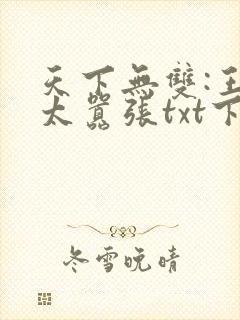 天下無雙:王
太囂張txt下
冬雪晚晴